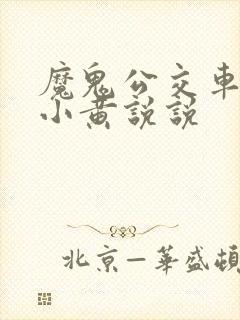 魔鬼公交車
小黄説説
北京—華盛頓